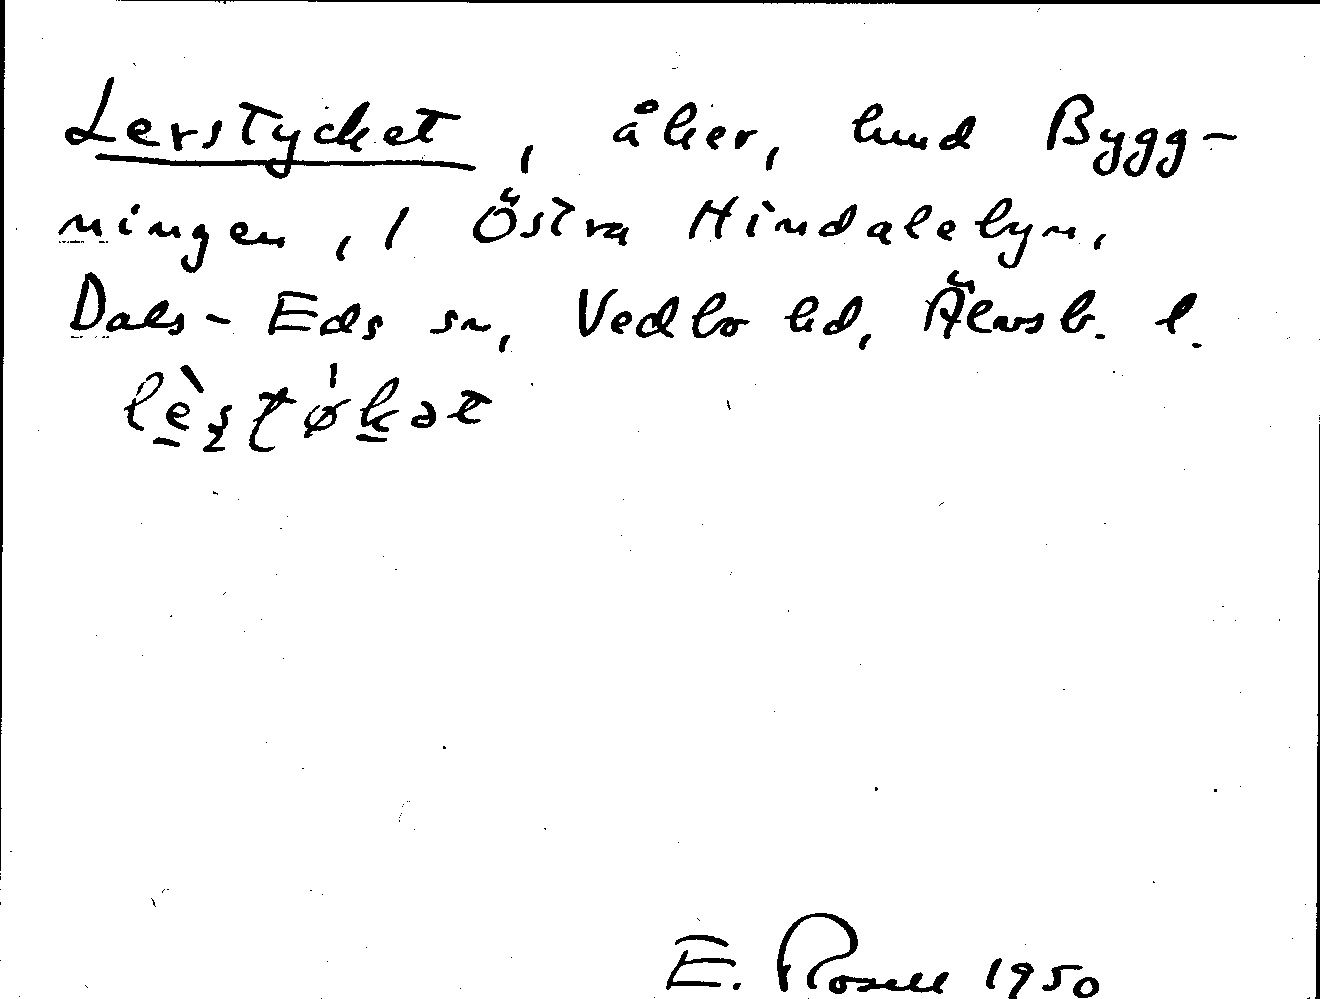 Lerstycket, åker, hmd Bygg-
ningen, i Östra Hindalebyn,
Dals-Eds sn, Vedbo hd, Älvsb. l.
E. Rosell 1950